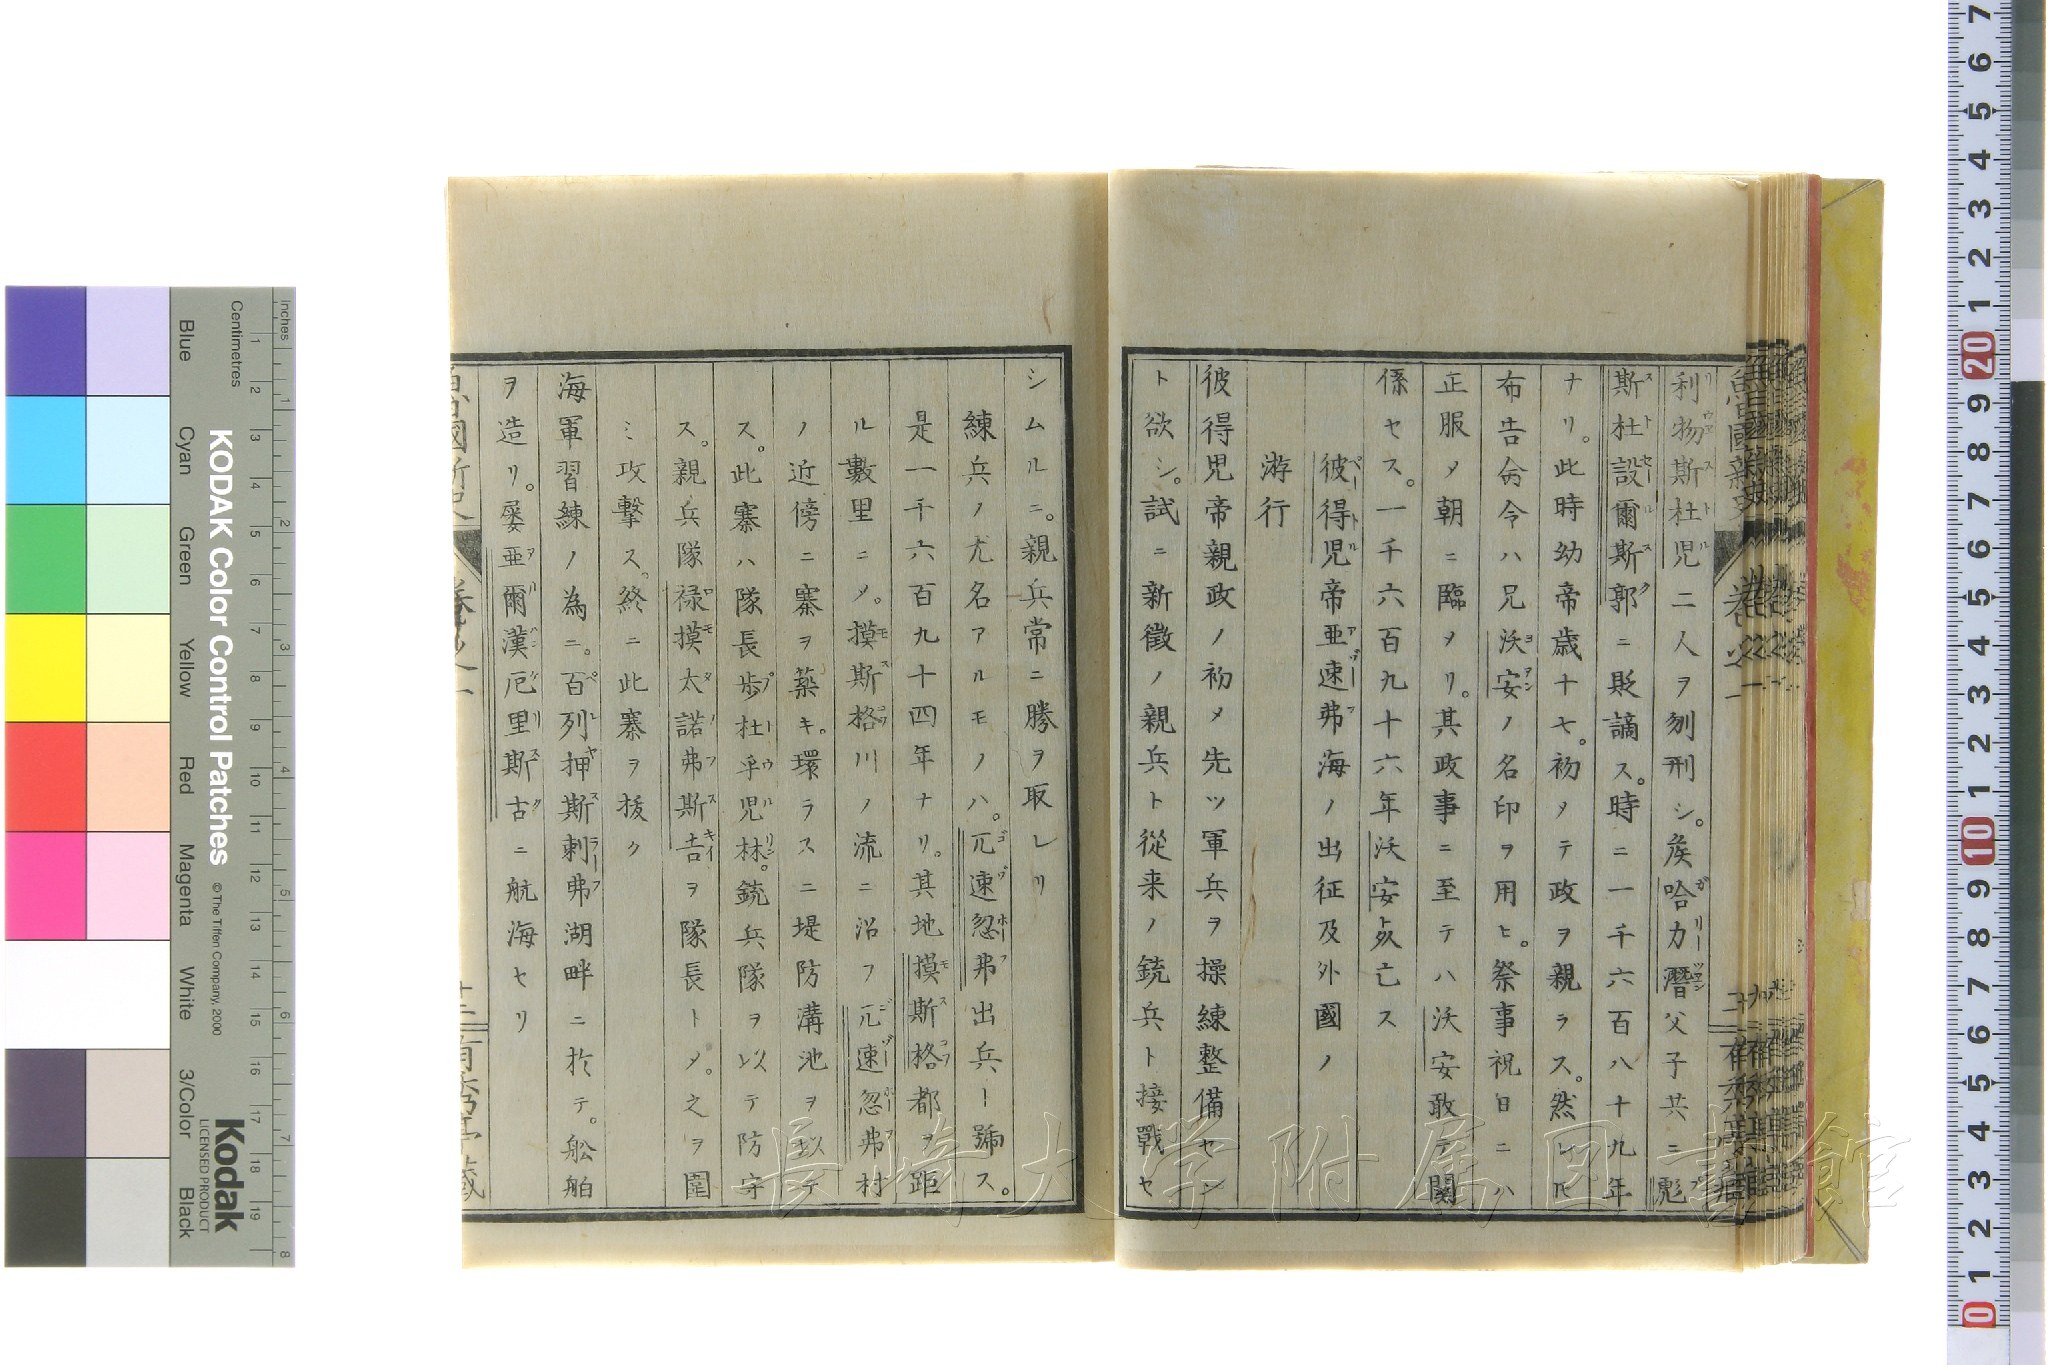 利物斯杜児二人ヲ刎刑シ。矦哈力潛父子共ニ彪
斯杜設爾斯郭ニ貶謫ス。時ニ一千六百八十九年
ナリ。此時幼帝歳十七。初メテ政ヲ親ラス。然レ𪜈
布告命令ハ兄沃安ノ名印ヲ用ヒ。祭事祝日ニハ
正服メ朝ニ臨メリ。其政事ニ至テハ沃安敢テ関
係セス。一千六百九十六年沃安歿亡ス
彼得児帝亜速弗海ノ出征及外國ノ
游行
彼得児帝親政ノ初メ先ツ軍兵ヲ操練整備セン
ト欲シ。試ニ新徴ノ親兵ト從来ノ銃兵ト接戰セ
シムルニ。親兵常ニ勝ヲ取レリ
練兵ノ尤名アルモノハ。兀速忽弗出兵ー號ス。
是一千六百九十四年ナリ。其地摸斯格都ヲ距
ル數里ニメ。摸斯格川ノ流ニ沿フ兀速忽弗村
ノ近傍ニ寨ヲ築キ。環ラスニ堤防溝池ヲ以テ
ス。此寨ハ隊長歩杜乎児林。銃兵隊ヲ以テ防守
ス。親兵隊禄摸太諾弗斯吉ヲ隊長トメ。之ヲ圍
ミ攻撃ス。終ニ此寨ヲ抜ク
海軍習練ノ為ニ。百列押斯剌弗湖畔ニ於テ。舩舶
ヲ造リ。屡亜爾漢厄里斯古ニ航海セリ
KODAK Color Control Patches
© The Tiffen Company, 2000
Kodak
LICENSED PRODUCT
Centimetres
Inches
Blue
Cyan
Green
Yellow
Red
Magenta
White
3/Color
Black
長崎大学附属図書館